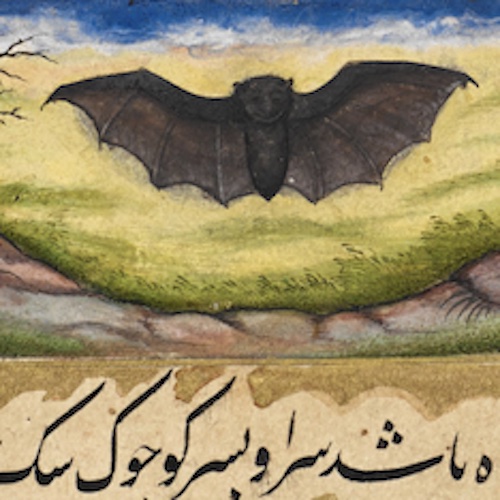 ه باشد سر او بسر کوجوک سک